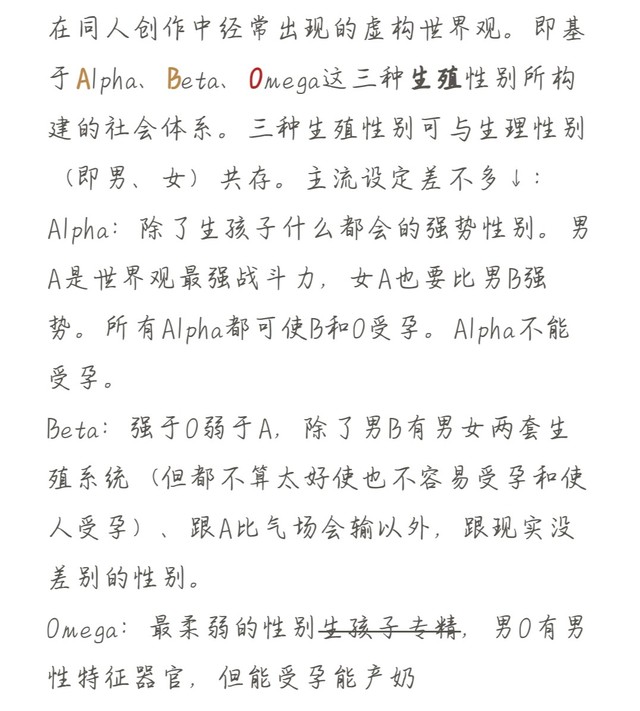 在同人创作中经常出现的虚构世界观。即基
于Alpha、Beta、Omega这三种生殖性别所构
建的社会体系。三种生殖性别可与生理性别
（即男、女）共存。主流设定差不多↓：
Alpha：除了生孩子什么都会的强势性别。男
A是世界观最强战斗力，女A也要比男B强
势。所有Alpha都可使B和O受孕。Alpha不能
受孕。
Beta：强于O弱于A，除了男B有男女两套生
殖系统（但都不算太好使也不容易受孕和使
人受孕）、跟A比气场会输以外，跟现实没
差别的性别。
Omega：最柔弱的性别生孩子专精，男O有男
性特征器官，但能受孕能产奶